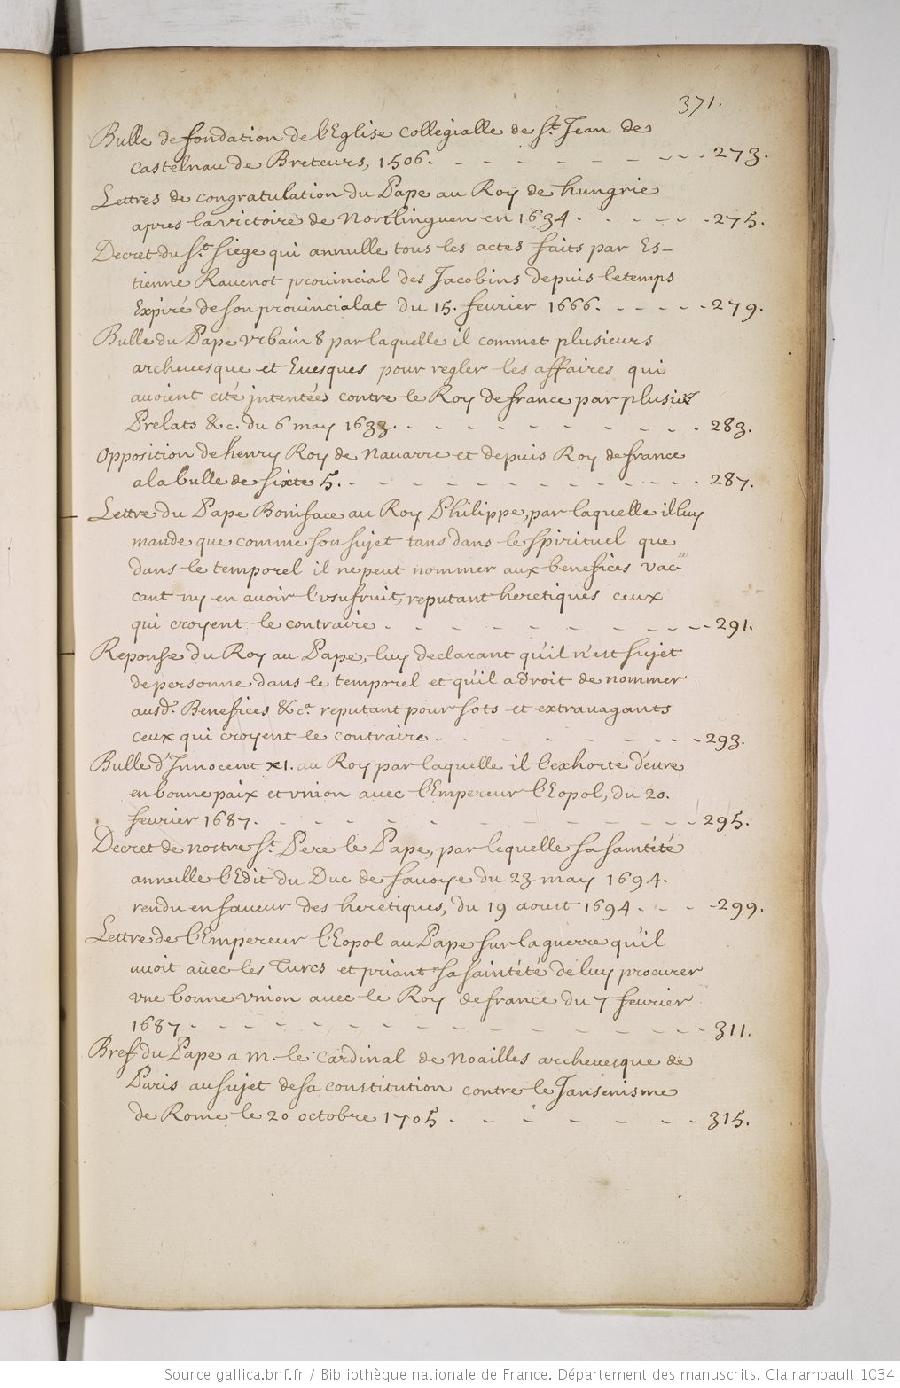 371.
Bulle de fondation de l'Eglise collegialle de St. Jean des
castelnau de Breteurs, 1506. - - - - - - - - 273.
Lettres de congratulation du Pape au Roy de hungrie
apres la victoire de Nortlinguen en 1634. - - - - - 275.
Decret du St. Siege qui annulle tous les actes faits par Es-
tienne Rauenot prouincial des Jacobins depuis le temps
Expiré de son prouincialat du 15. feurier 1666. - - - - - 279.
Bulle du Pape vrbain 8 par laquelle il commet plusieurs
archeuesque et Euesques pour regler les affaires qui
auoient eté intentées contre le Roy de france par plusieurs
Prelats &c. du 6 may 1633. - - - - - - - - 283.
Opposition de henry Roy de Nauarre et depuis Roy de france
a la bulle de Sixte 5. - - - - - - - - - - 287.
Lettre du Pape Boniface au Roy Philippe, par laquelle il luy
mande que comme son sujet tans dans le spirituel que
dans le temporel il ne peut nommer aux benefices vac-
cant ny en auoir l'usufruit, reputant heretiques ceux
qui croyent le contraire. - - - - - - - - - 291.
Reponse du Roy au Pape, luy declarant qu'il n'est sujet
de personne dans le temprel et qu'il a droit de nommer
ausd. Benefices &ca. reputant pour sots et extravagants
ceux qui croyent le contraire. - - - - - - - 293.
Bulle d'Innocent XI. au Roy par laquelle il l'exhorte d'etre
en bonne paix et vnion auec l'Empereur l'Eopol, du 20.
feurier 1687. - - - - - - - - - - - - 295.
Decret de nostre St. Pere le Pape, par lequelle sa sainteté
annulle l'Edit du Duc de sauoye du 23 may 1694.
rendu en faueur des heretiques, du 19 aoust 1694 - - - - 299.
Lettre de l'Empereur l'Eopol au Pape sur la guerre qu'il
auoit auec les Turcs et priant sa sainteté de luy procurer
vne bonne vnion auec le Roy de france du 7 feurier
1687. - - - - - - - - - - - - - - 311.
Bref du Pape a M. le Cardinal de Noailles archeuesque de
Paris au sujet de sa constitution contre le Jansenisme
de Rome le 20 octobre 1705. - - - - - - - 315.
Source gallica.bnf.fr / Bibliothèque nationale de France. Département des manuscrits. Clairambault 1034